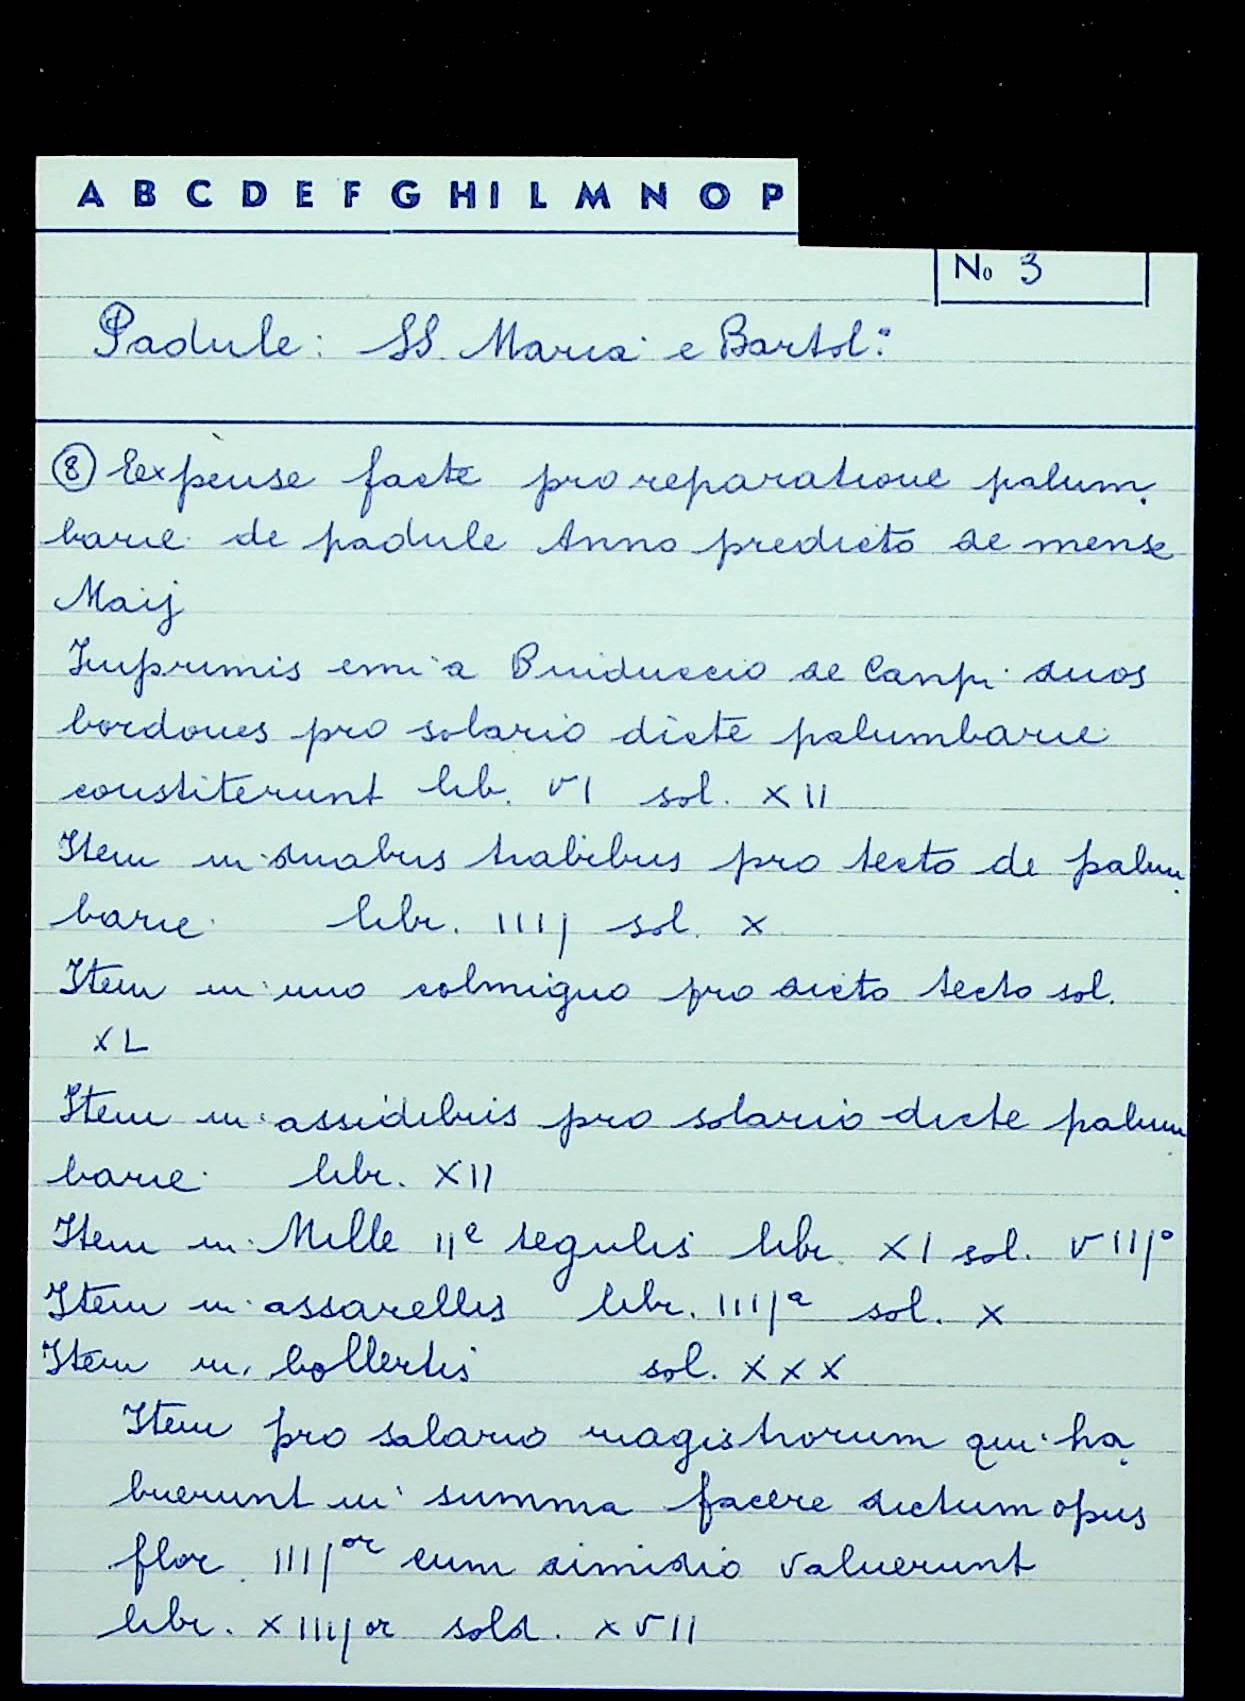 A B C D E F G H I L M N O P
No 3
Padule: SS. Maria e Bartol:
⑧ Expense facte pro reparatione palum
barie de padule Anno predicto de mense
Maij
Imprimis emi a Buiduccio de Canpi duos
bordones pro solario dicte palumbarie
constiterunt lib. VI sol. XII
Item in duabus trabibus pro tecto de palum
barie libr. IIIj sol. X
Item in uno colmiguo pro dicto tecto sol.
XL
Item in assidibus pro solario dicte palum
barie libr. XII
Item in Mille IIc tegulis libr. XI sol. VIIjo
Item in assarellis libr. IIIja sol. X
Item in bollectis sol. XXX
Item pro salario magistrorum qui ha
buerunt in summa facere dictum opus
flor. IIIjor cum dimidio valuerunt
libr. XIIIjor sold. XVII